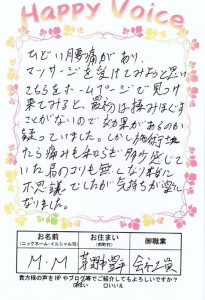 Happy Voice
ひどい腰痛があり、
マッサージを受けてみようと思い
こちらをホームページで見つけ
来てみると、最初は揉みほぐす
ことがないので効果があるのか
疑っていました。しかし施術後
たら痛みも和らぎ多少感じて
いた肩のコリも無くなり本当に
不思議でしたが気持ちが楽に
なりました。
お名前 お住まい 御職業
(ニックネーム・イニシャル可) (市町村)
M・M 茅野市 会社員
貴方様の声をHPやブログ等でご紹介してもよろしいですか？
はい □いいえ